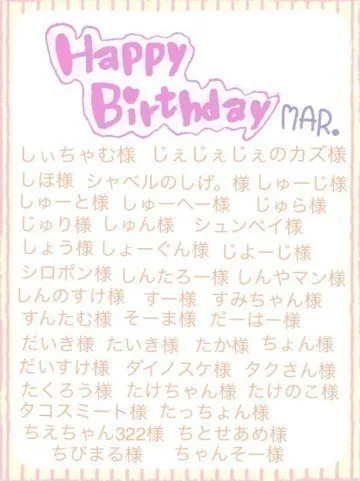 Happy
Birthday MAR.
しぃちゃむ様 じぇじぇじぇのカズ様
しほ様 シャベルのしげ。様 しゅーじ様
しゅーと様 しゅーへー様 じゅら様
じゅり様 しゅん様 シュンペイ様
しょう様 しょーぐん様 じよーじ様
シロポン様 しんたろー様 しんやマン様
しんのすけ様 すー様 すみちゃん様
すんたむ様 そーま様 だーはー様
だいき様 たいき様 たか様 ちょん様
だいすけ様 ダイノスケ様 タクさん様
たくろう様 たけちゃん様 たけのこ様
タコスミート様 たっちょん様
ちえちゃん322様 ちとせあめ様
ちびまる様 ちゃんそー様